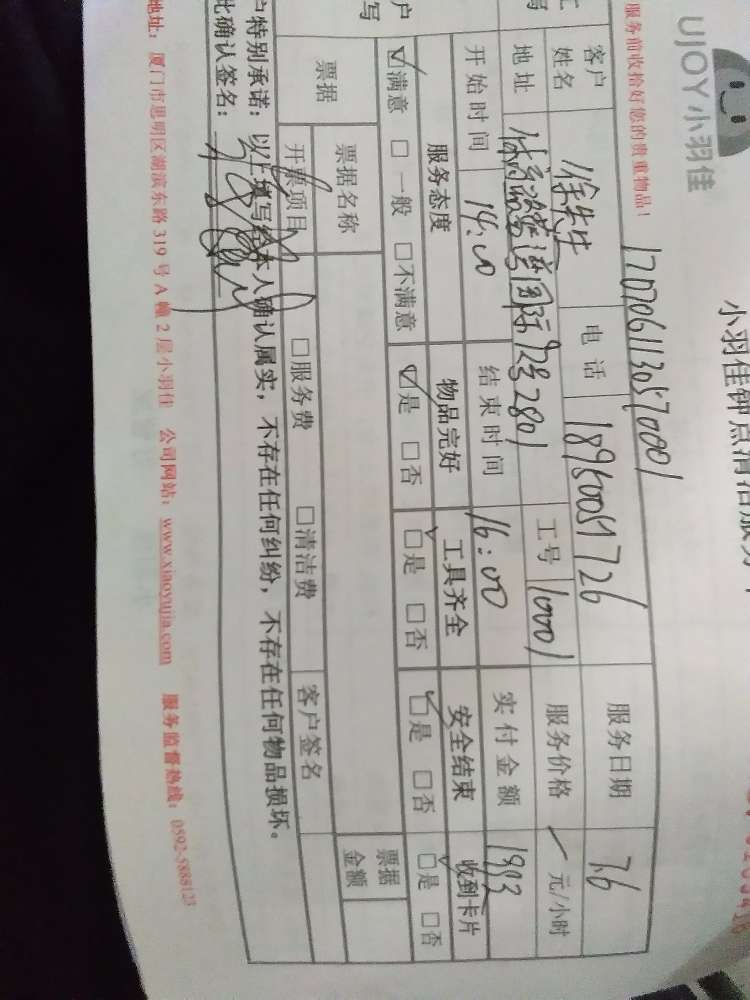 UJOY小羽佳
小羽佳钟点清洁服务
服务前收拾好您的贵重物品！
客户姓名 徐先生 电话 服务日期 7.6
地址 国际 工号 10001 服务价格 元/小时
开始时间 14:00 结束时间 16:00 实付金额
服务态度 物品完好 工具齐全 安全结束 收到卡片
☑满意 □一般 □不满意 ☑是 □否 ☑是 □否 ☑是 □否 ☑是 □否
票据 票据名称 票据金额
开票项目 □服务费 □清洁费 客户签名
户特别承诺：以上填写经本人确认属实，不存在任何纠纷，不存在任何物品损坏。
此确认签名：
地址：厦门市思明区湖滨东路 319 号 A 幢 2 层小羽佳 公司网站：www.xiaoyujia.com 服务监督热线：0592-5888123